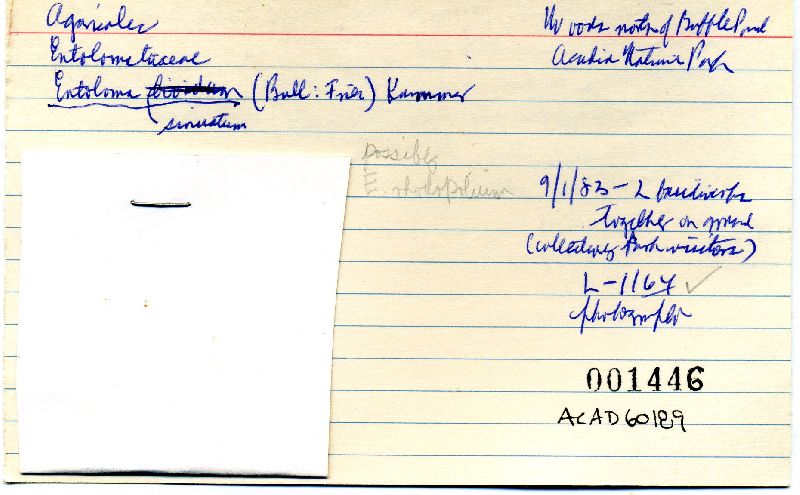 Agaricales
Entolomataceae
Entoloma lividum (Bull: Fries) Kummer
sinuatum
possibly
E. rhodopolium
Woods north of Bubble Pond
Acadia National Park
9/1/83 - 2
together on ground
(collecting Park visitors)
L-1164 ✓
photographed
001446
ACAD60189